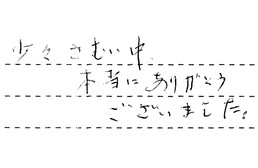 少々さむい中、
本当にありがとう
ございました。